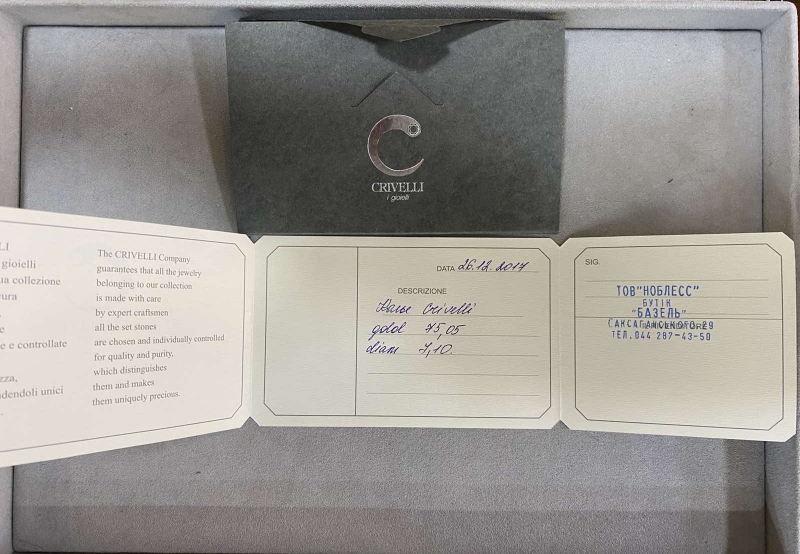 CRIVELLI
i gioielli
LI
gioielli
ua collezione
ura
e
e e controllate
zza,
ndendoli unici
.
The CRIVELLI Company
guarantees that all the jewelry
belonging to our collection
is made with care
by expert craftsmen
all the set stones
are chosen and individually controlled
for quality and purity,
which distinguishes
them and makes
them uniquely precious.
DATA 26.12.2017
DESCRIZIONE
Колье Crivelli
gold 75,05
diam 7,10.
SIG.
ТОВ"НОБЛЕСС"
БУТІК
"БАЗЕЛЬ"
САКСАГАНСЬКОГО,29
ТЕЛ.044 287-43-50